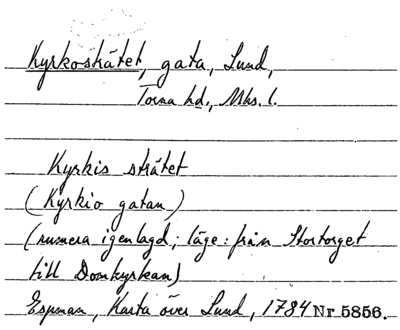 Kyrkosträtet, gata, Lund,
Torna hd., Mhs. l.
Kyrkis strätet
(Kyrkio gatan)
(numera igenlagd; läge: från Stortorget
till Domkyrkan)
Espman, Karta över Lund, 1784 Nr 5856.